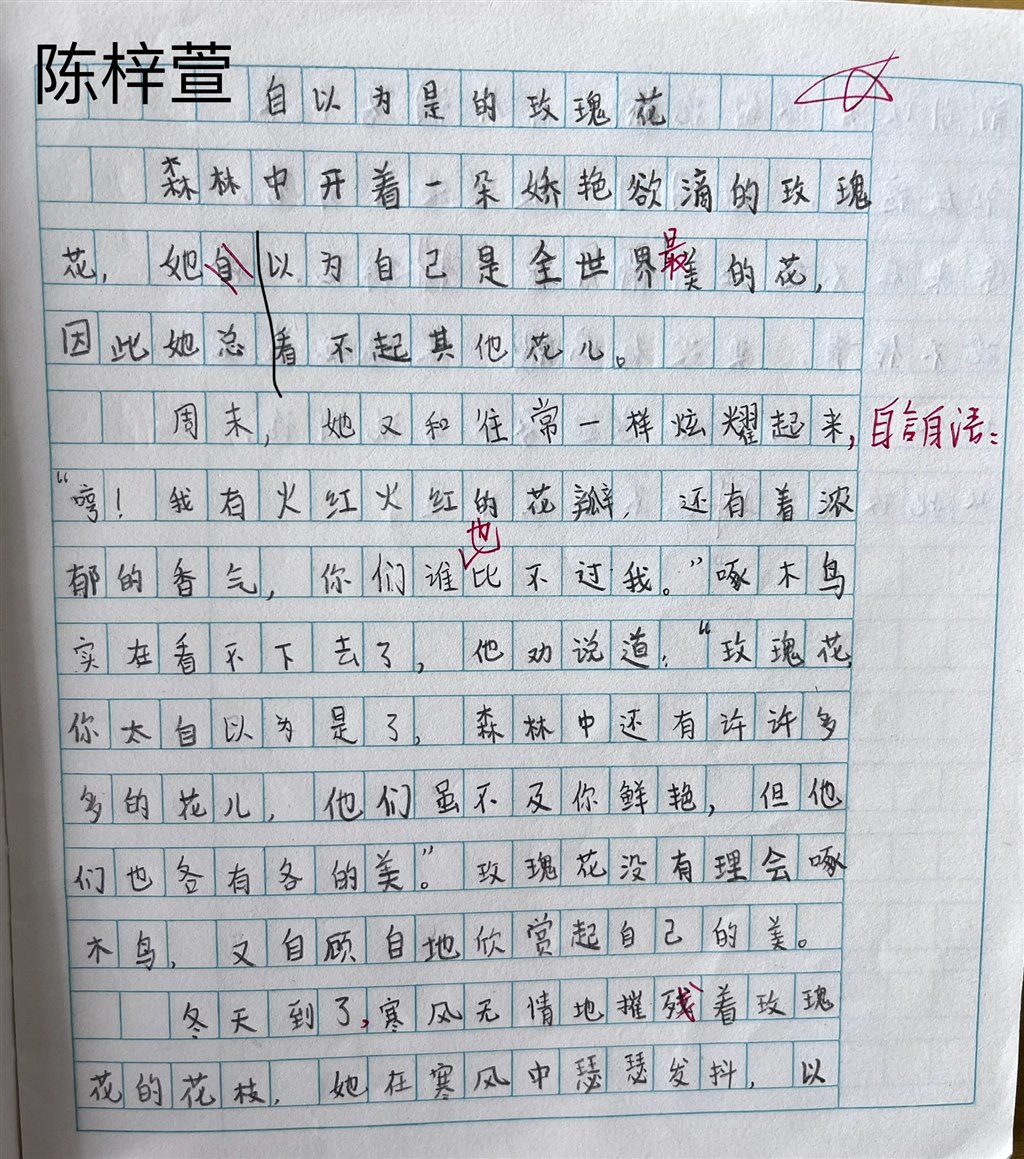 陈梓萱
自以为是的玫瑰花
森林中开着一朵娇艳欲滴的玫瑰
花，她自以为自己是全世界最美的花，
因此她总看不起其他花儿。
周末，她又和往常一样炫耀起来，自言自语：
“哼！我有火红火红的花瓣，还有着浓
郁的香气，你们谁也比不过我。”啄木鸟
实在看不下去了，他劝说道：“玫瑰花，
你太自以为是了，森林中还有许许多
多的花儿，他们虽不及你鲜艳，但他
们也各有各的美。”玫瑰花没有理会啄
木鸟，又自顾自地欣赏起自己的美。
冬天到了，寒风无情地摧残着玫瑰
花的花枝，她在寒风中瑟瑟发抖，以